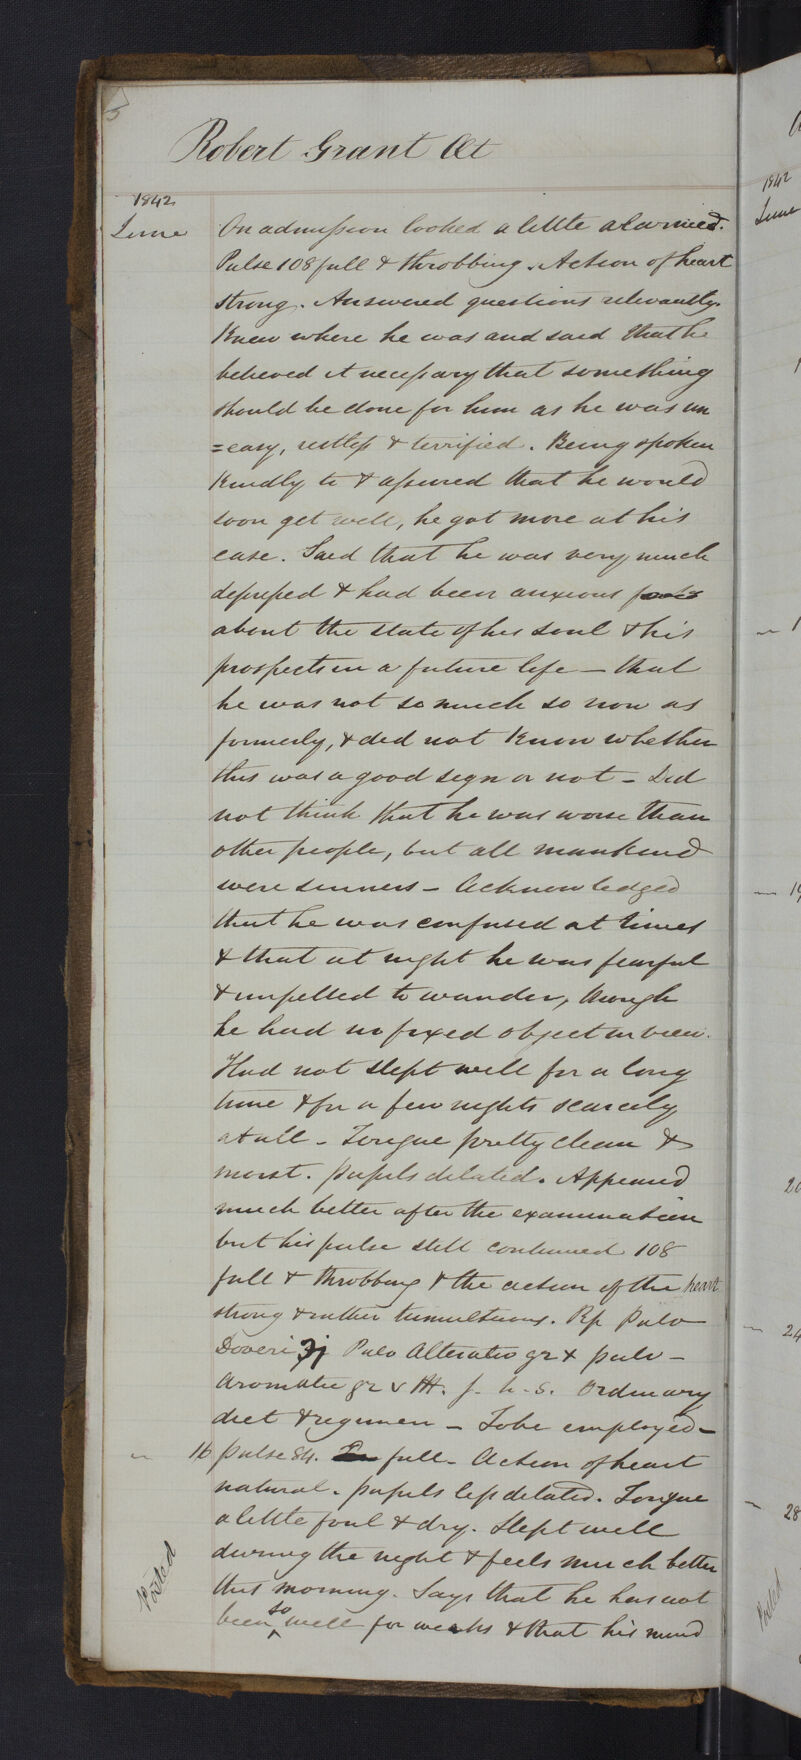 3
Robert Grant Æt
1842
June On admission looked a little alarmed.
Pulse 108 full & throbbing. Action of heart
strong. Answered questions relevantly.
Knew where he was and said that he
believed it necessary that something
should be done for him as he was un
=easy, restless & terrified. Being spoken
kindly to & assured that he would
soon get well, he got more at his
ease. Said that he was very much
depressed & had been anxious
about the state of his soul & his
prospects in a future life — that
he was not so much so now as
formerly, & did not know whether
this was a good sign or not — Did
not think that he was worse than
other people, but all mankind
were sinners — Acknowledged
that he was confused at times
& that at night he was fearful
& impelled to wander, though
he had no fixed object in view.
Had not slept well for a long
time & for a few nights scarcely
at all — Tongue pretty clean &
moist. pupils dilated. Appeared
much better after the examination
but his pulse still continued 108
full & throbbing & the action of the heart
strong & rather tumultuous. Rp Pulv
Doveri Pulv Alterativ gr x pulv —
Aromatic gr v ft. h. s. Ordinary
diet & regimen — To be employed —
" 16 pulse 84. full — Action of heart
natural. pupils less dilated. Tongue
a little foul & dry. Slept well
during the night & feels much better
this morning. Says that he has not
been so well for weeks & that his mind
Posted
1842
June
1
1
19
20
24
28
Posted